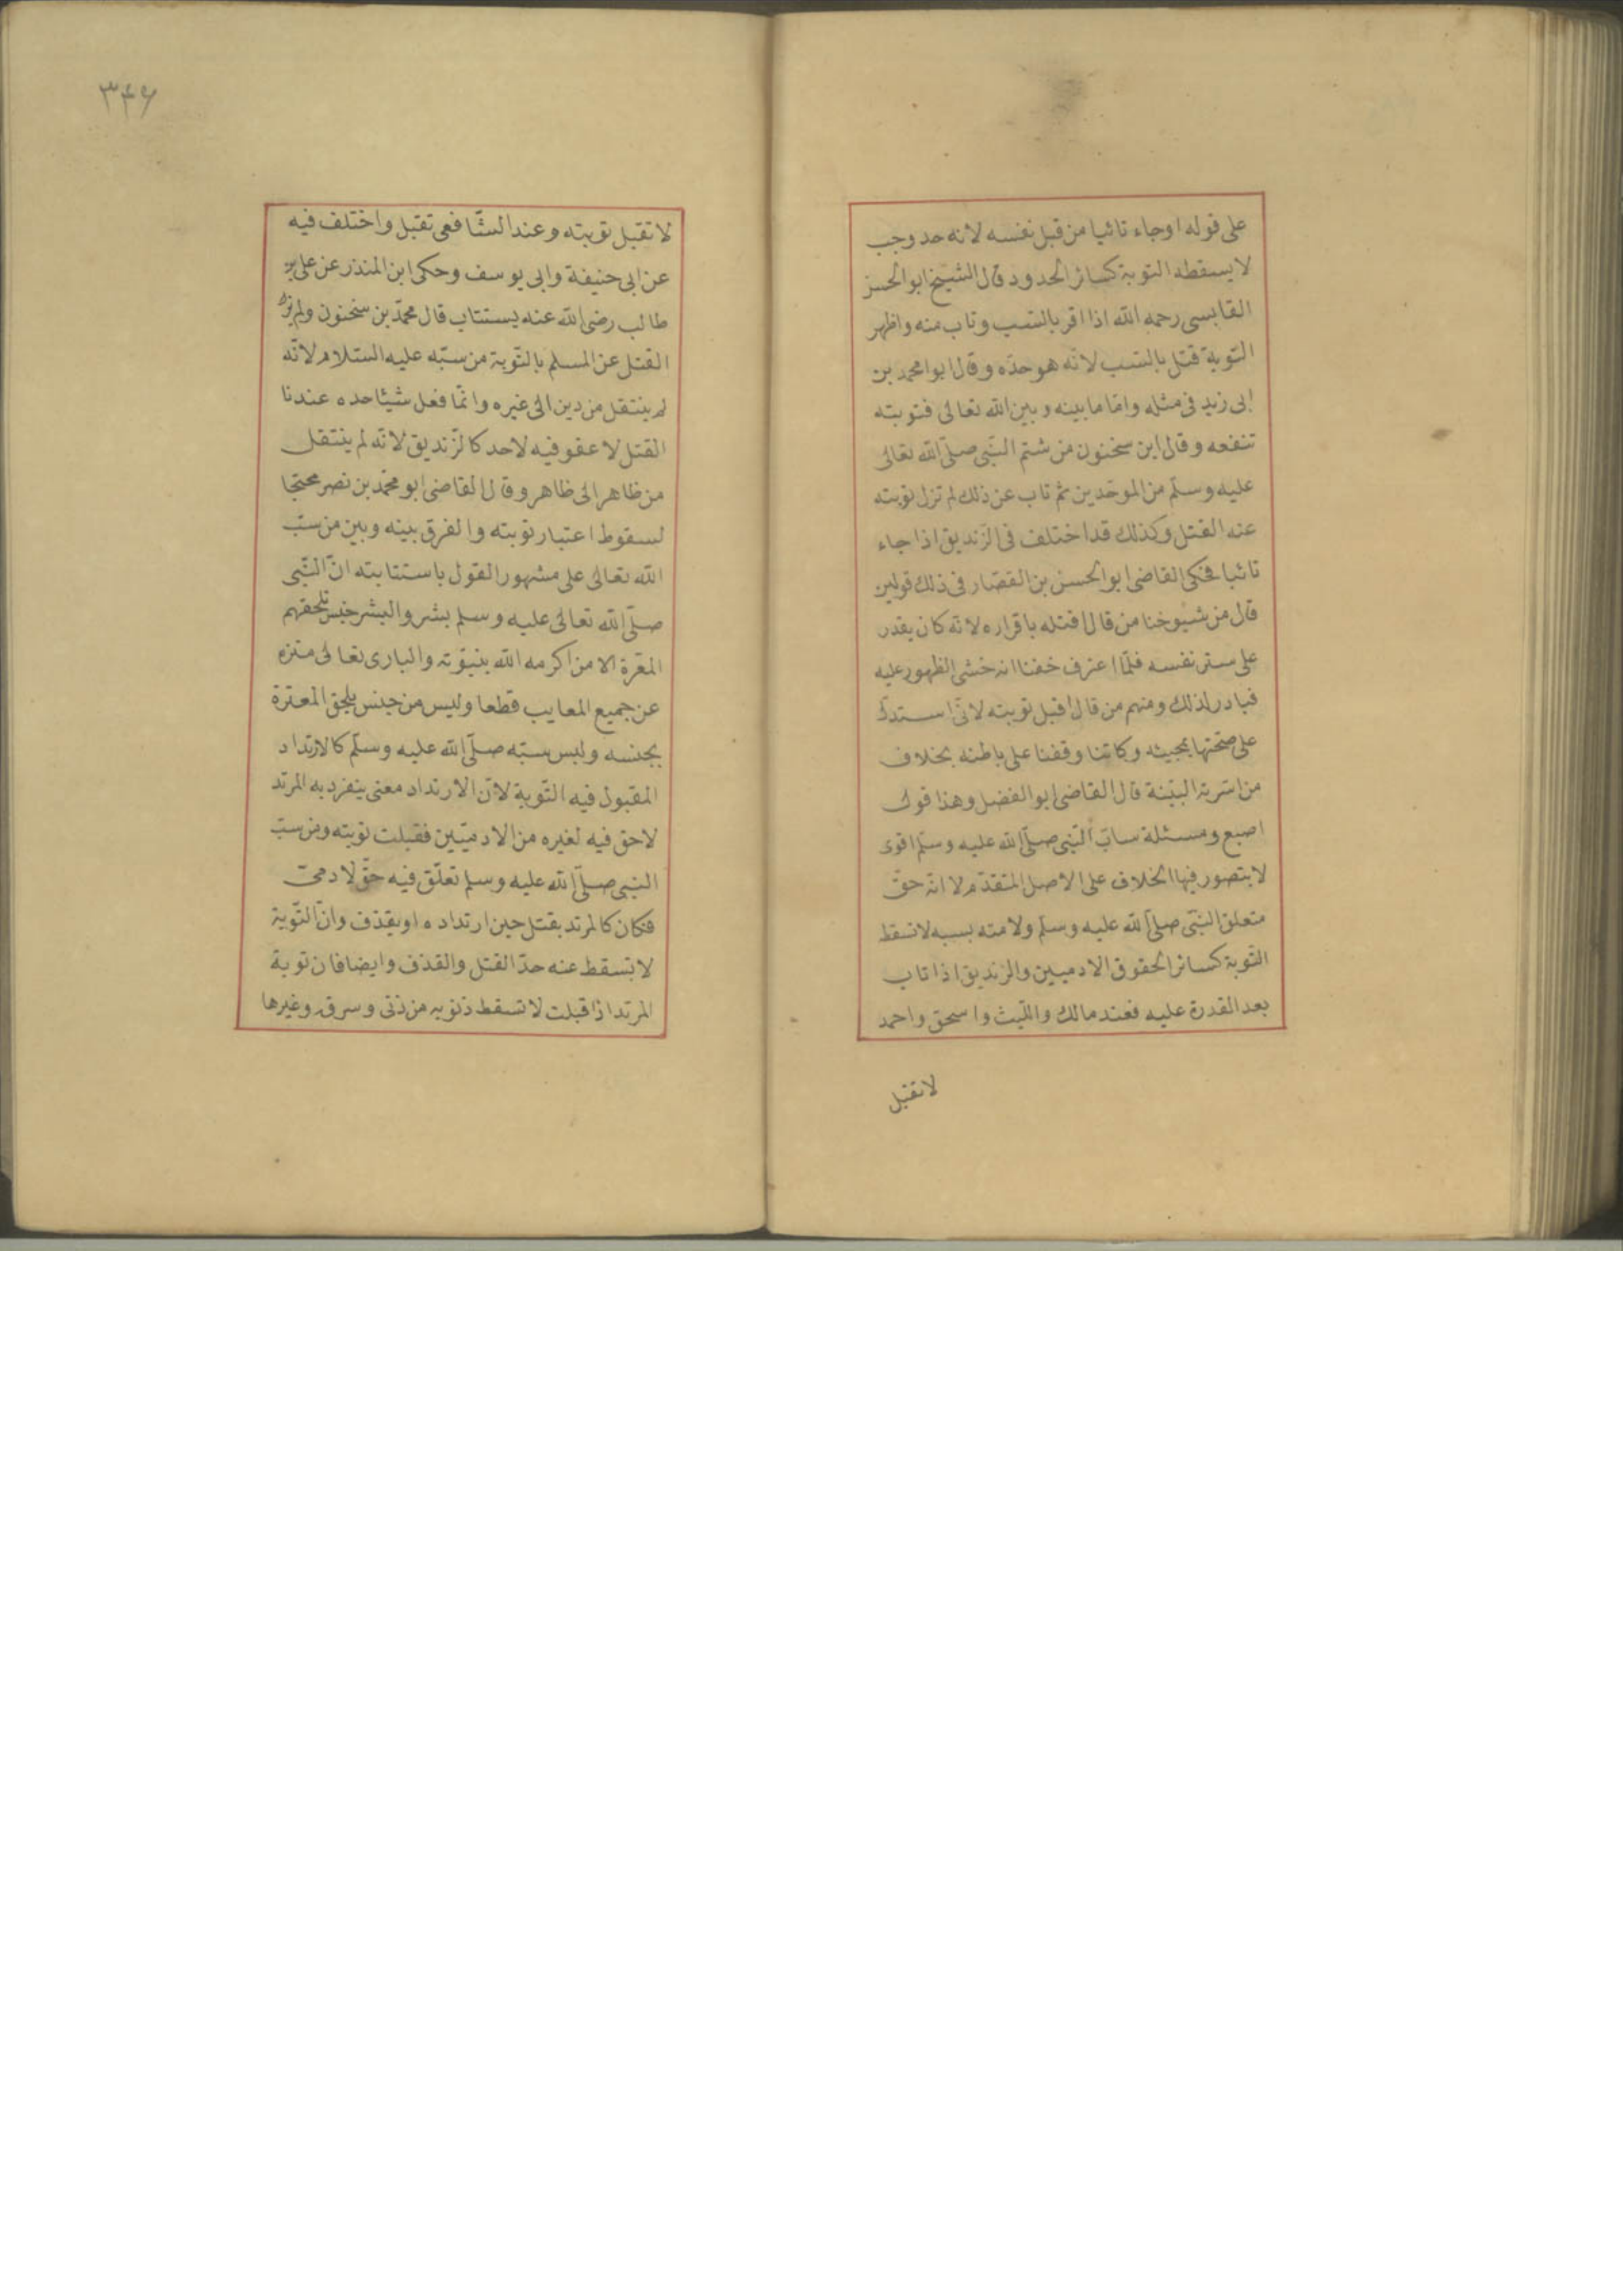 على قوله او جاء تائبا من قبل نفسه لانه حد وجب
لا يسقطه التوبة كسائر الحدود قال الشيخ ابو الحسن
القابسى رحمه الله اذا اقر بالسّب وتاب منه واظهر
التوبة قتل بالسّب لانّه هو حدّه وقال ابو محمد بن
ابى زيد فى مثله وامّا ما بينه وبين الله تعالى فتوبته
تنفعه وقال ابن سخنون من شتم النّبى صلّى الله تعالى
عليه وسلّم من الموحّدين ثم تاب عن ذلك لم تزل توبته
عنه القتل وكذلك قد اختلف فى الزّنديق اذا جاء
تائبا فحكى القاضى ابو الحسن بن القصّار فى ذلك قولين
قال من شيوخنا من قال اقتله باقراره لانّه كان يقدر
على ستر نفسه فلمّا اعترف خفنا انه خشى الظهور عليه
فبادر لذلك ومنهم من قال اقبل توبته لانّى استدلّ
على صحّتها بمجيئه وكانّنا وقفنا على باطنه بخلاف
من اسرته البيّنة قال القاضى ابو الفضل وهذا قول
اصبع ومسئلة سابّ النّبى صلّى الله عليه وسلّم اقوى
لا يتصور فيها الخلاف على الاصل المتقدّم لا انّه حقّ
متعلق النبّى صلّى الله عليه وسلّم ولامته بسببه لا تسقط
التوبة كسائر الحقوق الادميين والزنديق اذا تاب
بعد القدرة عليه فعند مالك واللّيث واسحق واحمد
لا تقبل
٣٤٦
لا تقبل توبته وعند الشّافعى تقبل واختلف فيه
عن ابى حنيفة وابى يوسف وحكى ابن المنذر عن على بن
طالب رضى الله عنه يستتاب قال محمّد بن سخنون ولم يزل
القتل عن المسلم بالتّوبة من سبّه عليه السّلام لانّه
لم ينتقل من دين الى غيره وانّما فعل شيئا حده عندنا
القتل لا عفو فيه لاحد كالزّنديق لانّه لم ينتقل
من ظاهر الى ظاهر وقال القاضى ابو محمّد بن نصر محتجا
لسقوط اعتبار توبته والفرق بينه وبين من سبّ
الله تعالى على مشهور القول باستتابته انّ النّبى
صلّى الله تعالى عليه وسلم بشر والبشر جنس تلحقهم
المعّرة الا من اكرمه الله بنبوّته والبارى تعالى منزه
عن جميع المعايب قطعا وليس من جنس يلحق المعترة
بجنسه وليس سبّه صلّى الله عليه وسلّم كالارتداد
المقبول فيه التّوبة لانّ الارتداد معنى ينفرد به المرتد
لا حق فيه لغيره من الادميّين فقبلت توبته ومن سبّ
النبى صلّى الله عليه وسلم تعلّق فيه حقّ لادمىّ
فكان كالمرتد يقتل حين ارتداده او يقذف وانّ التّوبة
لا تسقط عنه حدّ القتل والقذف وايضا فان توبة
المرتد اذا قبلت لا تسقط ذنوبه من ذنى وسرق وغيرها